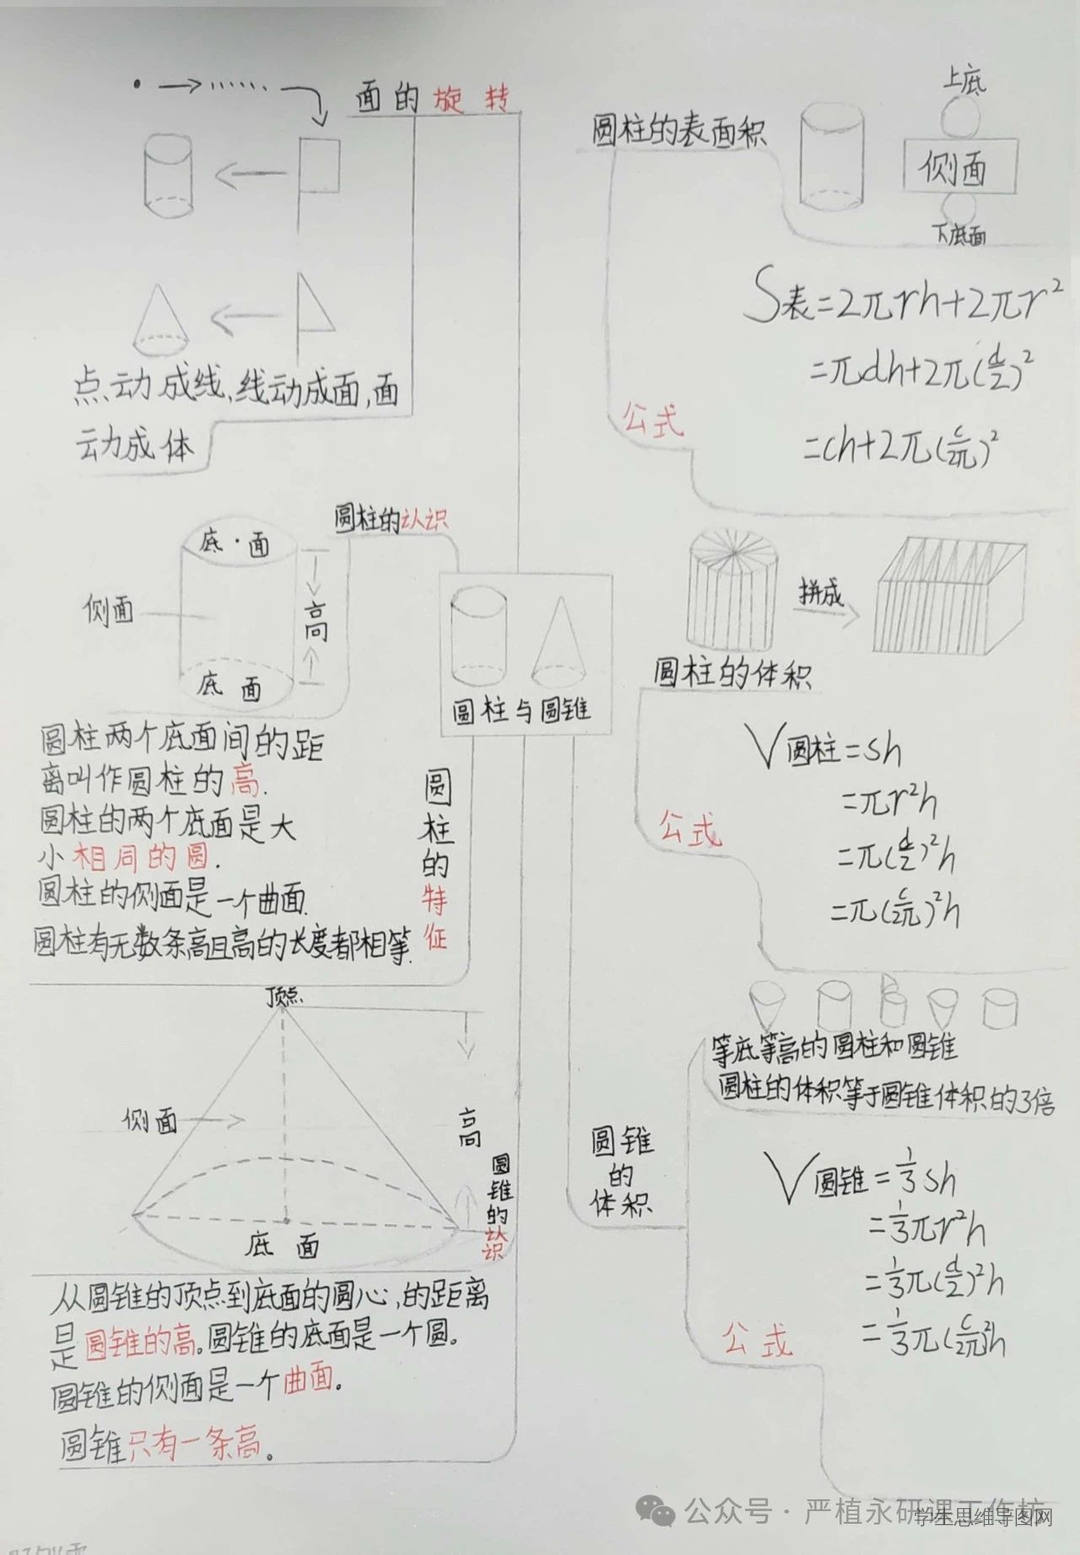 面的旋转
点动成线、线动成面,面
动成体
圆柱的认识
底·面
侧面
高
底面
圆柱两个底面间的距
离叫作圆柱的高.
圆柱的两个底面是大
小相同的圆.
圆柱的侧面是一个曲面.
圆柱有无数条高且高的长度都相等.
圆柱的特征
圆柱与圆锥
顶点
侧面
高
底面
圆锥的认识
从圆锥的顶点到底面的圆心,的距离
是圆锥的高。圆锥的底面是一个圆。
圆锥的侧面是一个曲面。
圆锥只有一条高。
圆柱的表面积
上底
侧面
下底面
公式
S表=2πrh+2πr²
=πdh+2π(d/2)²
=ch+2π(c/2π)²
拼成
圆柱的体积
公式
V圆柱=sh
=πr²h
=π(d/2)²h
=π(c/2π)²h
等底等高的圆柱和圆锥
圆柱的体积等于圆锥体积的3倍
圆锥
的
体积
公式
V圆锥=1/3sh
=1/3πr²h
=1/3π(d/2)²h
=1/3π(c/2π)²h
公众号·严植永研课工作坊
学生思维导图网